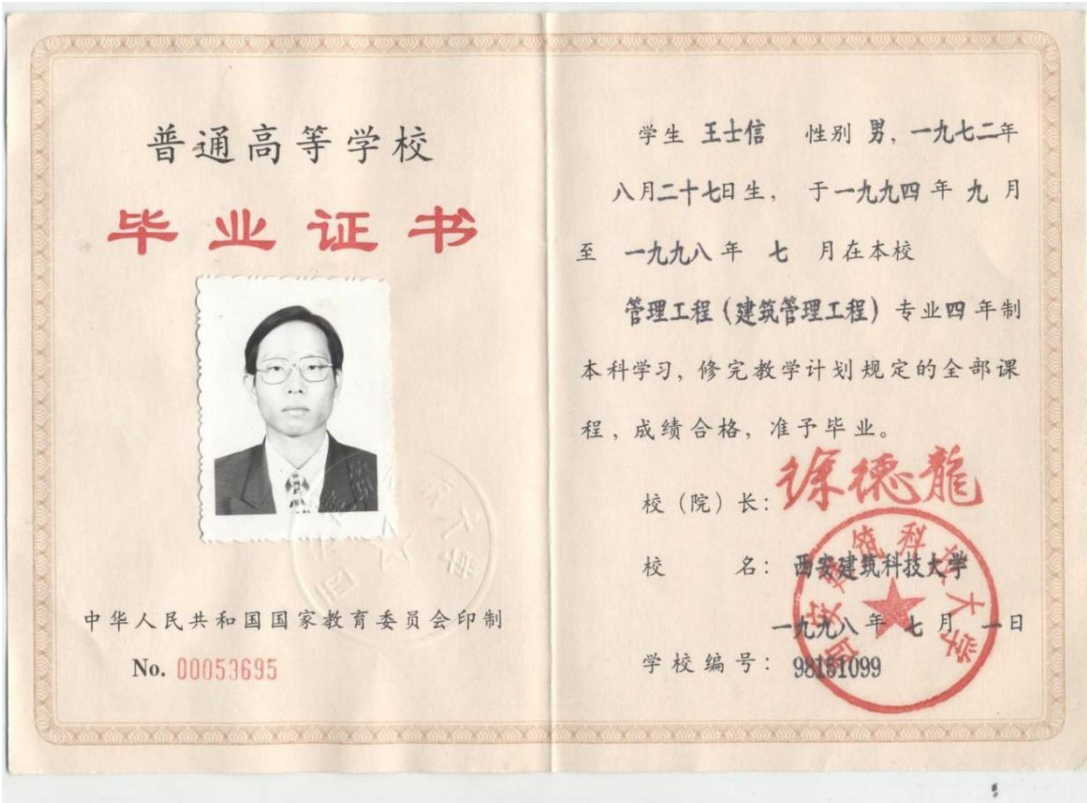 普通高等学校
毕业证书
中华人民共和国国家教育委员会印制
No. 00053695
学生 王士信 性别 男，一九七二年
八月二十七日生， 于一九九四年 九 月
至 一九九八年 七 月在本校
管理工程（建筑管理工程）专业四年制
本科学习，修完教学计划规定的全部课
程，成绩合格，准予毕业。
校（院）长：徐德龍
校 名：西安建筑科技大学
一九九八年 七 月 一日
学校编号：98151099
西安建筑科技大学